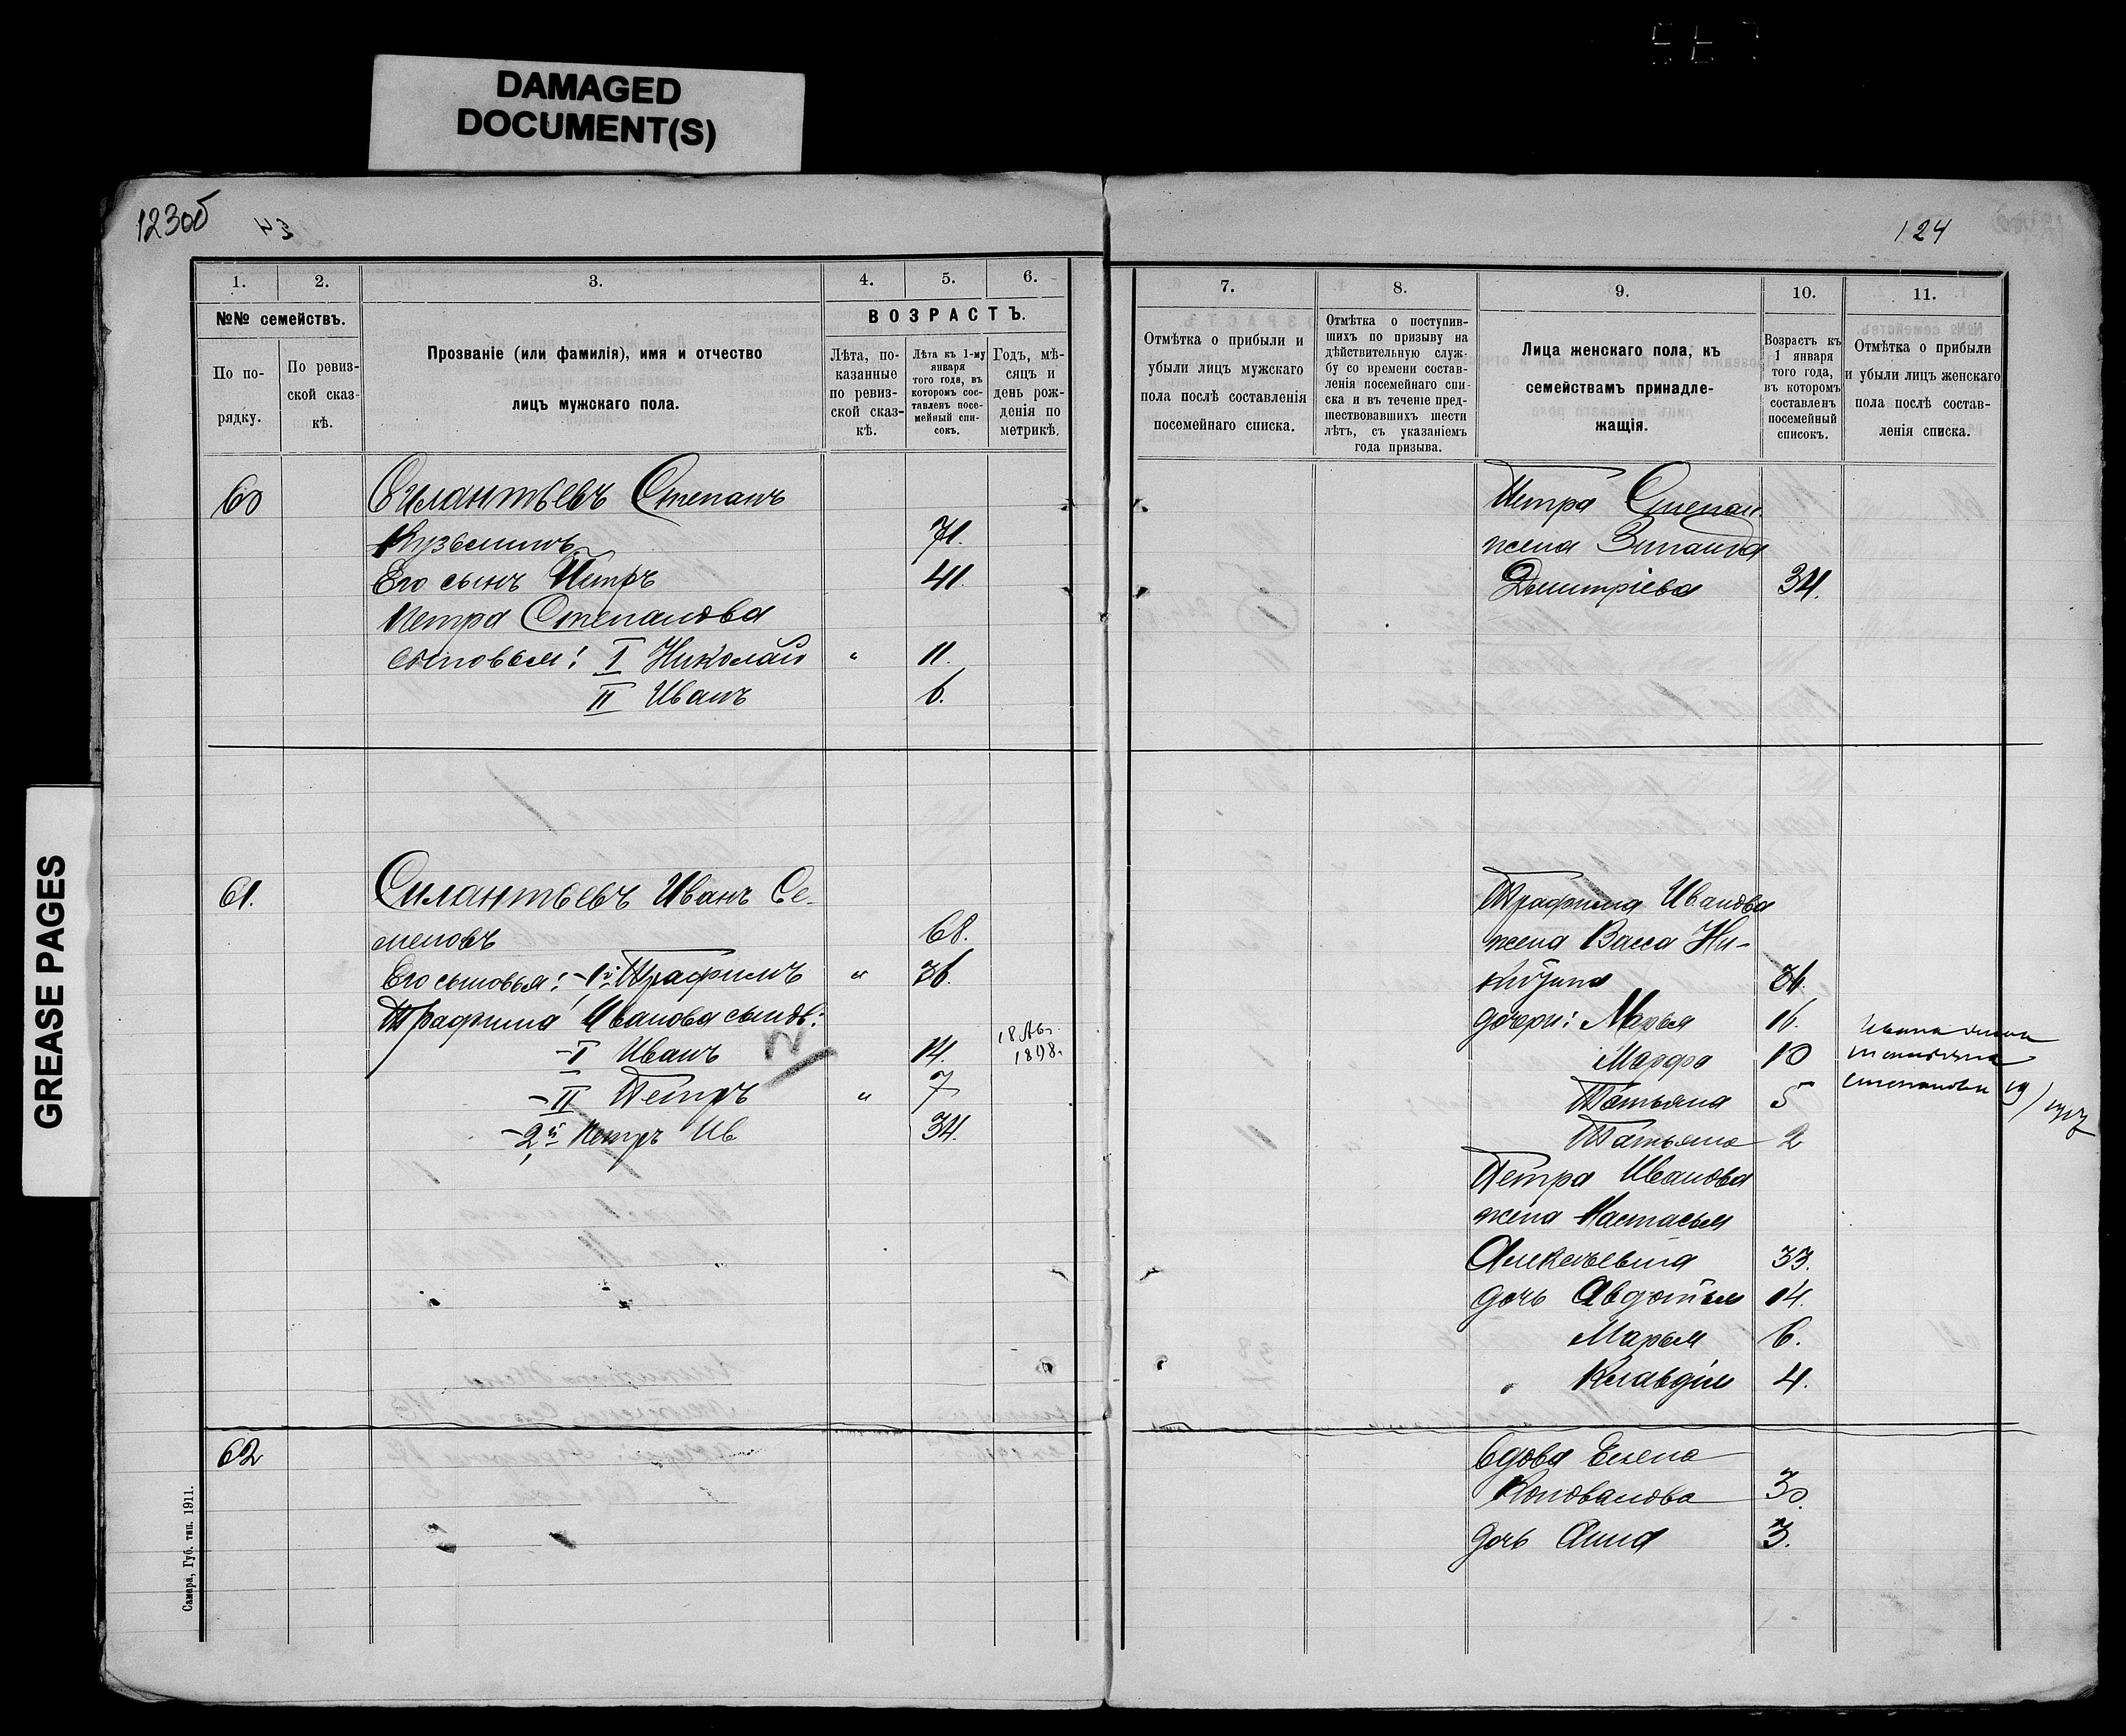 DAMAGED
DOCUMENT(S)
GREASE PAGES
123об
43
124
1. 2. 3. 4. 5. 6.
№№ семействъ.
По по-
рядку.
По ревиз-
ской сказ-
кѣ.
Прозваніе (или фамилія), имя и отчество
лицъ мужскаго пола.
ВОЗРАСТЪ.
Лѣта, по-
казанные
по ревиз-
ской сказ-
кѣ.
Лѣта къ 1-му
января
того года, въ
которомъ сос-
тавленъ посе-
мейный спи-
сокъ.
Годъ, мѣ-
сяцъ и
день рож-
денія по
метрикѣ.
60 Силантьевъ Степанъ
Кузьминъ 71.
Его сынъ Петръ 41.
Петра Степанова
сыновья: I Николай „ 11.
II Иванъ 6.
61. Силантьевъ Иванъ Се-
меновъ 68.
Его сыновья: 1й Трафимъ „ 36.
Трафима Иванова сынов:
I Иванъ 14. 18 Ав.
1898.
II Петръ „ 7
2й Петръ Ив 34.
62
Самара, Губ. тип. 1911.
7. 8. 9. 10. 11.
Отмѣтка о прибыли и
убыли лицъ мужскаго
пола послѣ составленія
посемейнаго списка.
Отмѣтка о поступив-
шихъ по призыву на
дѣйствительную служ-
бу со времени состав-
ленія посемейнаго спи-
ска и въ теченіе пред-
шествовавшихъ шести
лѣтъ, съ указаніемъ
года призыва.
Лица женскаго пола, къ
семействамъ принадле-
жащія.
Возрастъ къ
1 января
того года,
въ которомъ
составленъ
посемейный
списокъ.
Отмѣтка о прибыли
и убыли лицъ женскаго
пола послѣ состав-
ленія списка.
Петра Степан.
жена Зинаида
Дмитріева 34.
Трафима Иванова
жена Васса Ни-
дочери: Марья 16.
Марфа 10
Татьяна 5
Татьяна 2
Петра Иванова
жена Настасья
Алексѣевна 33.
дочь Авдотья 14.
Марья 6.
Клавдія 4.
Ивана жена
Степановна 19
вдова Елена
Коновалова 30.
дочь Анна 3.